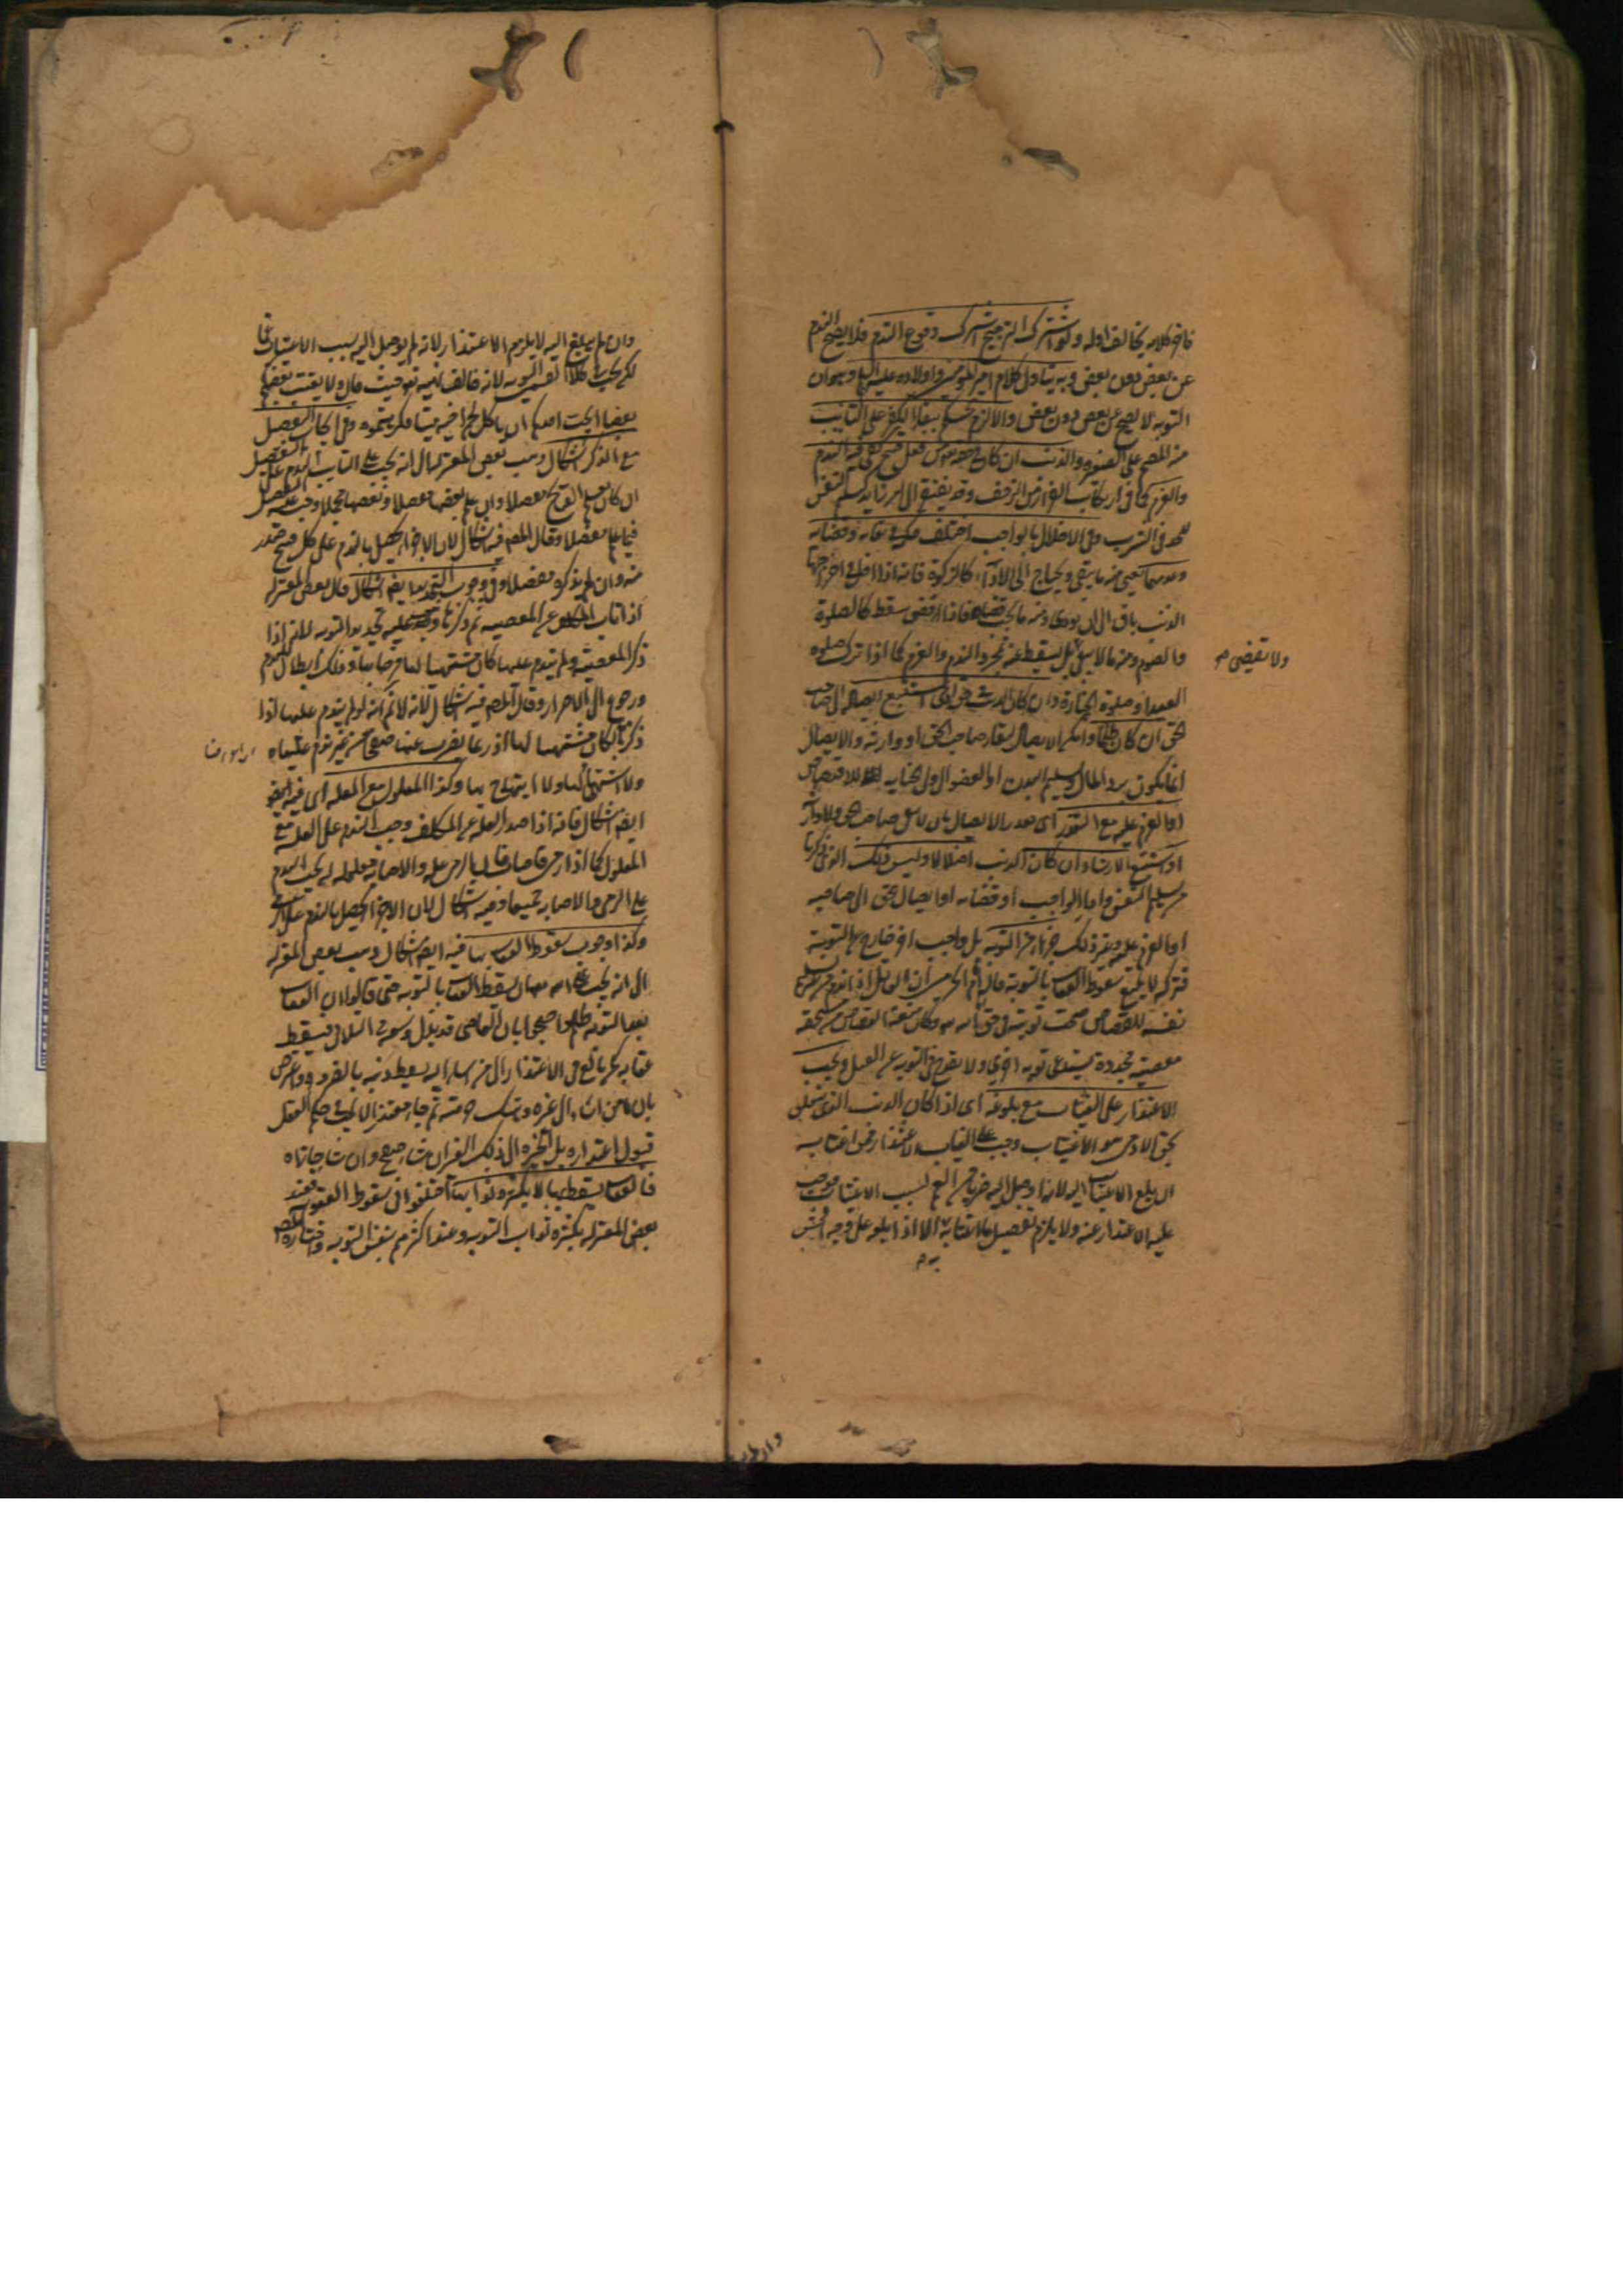 فان كلامه يخالف اوله ولو اشترك الترجيح اشترك وقوع الندم فلا يصح الندم
عن بعض دون بعض وبه يتاول كلام امير المؤمنين واولاده عليهم السلام وهو ان
التوبة لا تصح عن بعض دون بعض والا لزم الحكم ببقاء الكفر على التائب
منه المصر على الصغيرة والذنب ان كان في حقه من فعل قبيح كفى فيه الندم
والعزم كما في ارتكاب الفرار من الزحف وقد يفتقر الى امر زايد كتسليم النفس
للحد في الشرب وفي الاخلال بالواجب اختلف حكمه في بقائه وقضائه
وعدمهما يعني منه ما يبقى ويحتاج الى الاداء كالزكوة فانه اذا اخل في اخراجها
الذنب باق الى ان يودى ومنه ما يجب قضاه فاذا قضى سقط كالصلوة
والصوم ومنه ما لا يبقى بل يسقط عنه بمجرد الندم والعزم كما اذا ترك صلوة
ولا يقضى
العيد او صلوة الجنازة وان كان الذنب في حق ادمى استتبع ايصاله الى صاحب
الحق ان كان ظلما وامكن الايصال ببقاء صاحب الحق او وارثه والايصال
انما يكون برد المال وتسليم البدن او العضو الى ولى الجناية للاقتصاص
او العزم عليه مع التعذر اى تعذر الايصال بان لا يبقى صاحب حق ولا وارث
او استتبع الارشاد ان كان الذنب اضلالا وليس ذلك الذى ذكرنا
من تسليم النفس واداء الواجب او قضائه او ايصال حق الى صاحبه
او العزم عليه وغير ذلك جزءا من التوبة بل واجب اخر خارج عن التوبة
فتركه لا يمنع سقوط العقاب بالتوبة قال امام الحرمين ان القاتل اذا ندم من غير تسليم
نفسه للقصاص صحت توبته في حق الله وكان منعه القصاص من مستحقه
معصية مجددة يستدعى توبة اخرى ولا يقدح في التوبة عن القتل ويجب
الاعتذار على المغتاب مع بلوغه اى اذا كان الذنب الذى يتعلق
بحق الادمى هو الاغتياب وجب على المغتاب الاعتذار عمن اغتابه
ان بلغ الاغتياب اليه لانه اوصل اليه ضربا من الغم بسبب الاغتياب فوجب
عليه الاعتذار عنه ولا يلزم تفصيل ما اغتابه الا اذا بلغه على وجه افحش
وان لم يبلغ اليه لا يلزم الاعتذار لانه لم يوصل اليه بسبب الاغتياب غما
لكن يجب في كلا القسمين التوبة لانه خالف نهيه تعالى حيث قال ولا يغتب بعضكم
بعضا ايحب احدكم ان ياكل لحم اخيه ميتا فكرهتموه وفي ايجاب التفصيل
مع الذكر اشكال ذهب بعض المعتزلة الى انه يجب على التائب الندم على التفصيل
ان كان يعلم القبائح مفصلا وان علم بعضها مفصلا وبعضها مجملا وجب عليه التفصيل
فيما علم مفصلا وقال المص فيه اشكال لان الاجزاء يحصل بالندم على كل قبيح صدر
منه وان لم يذكره مفصلا وفي وجوب التجديد ايضا اشكال قال بعض المعتزلة
اذا تاب المكلف عن المعصية ثم ذكرها وجب عليه تجديد التوبة لانه اذا
ذكر المعصية ولم يندم عليها كان مشتهيا لها فرحا بها وذلك ابطال للندم
ورجوع الى الاصرار وقال المص فيه اشكال لانه لا نم انه لو لم يندم عليها اذا
ذكرها لكان مشتهيا لها اذ ربما يضرب عنها صفحا من غير ندم عليها
ولا اشتهاء لها ولا ابتهاج بها وكذا المعلول مع العلة اى فيه ايضا
ايضا اشكال فانه اذا صدر العلة عن المكلف وجب الندم على العلة مع
المعلول كما اذا رمى فاصاب فالرمى علة والاصابة معلولة له يجب الندم
على الرمى والاصابة جميعا وفيه اشكال لان الاجزاء يحصل بالندم على الرمى
وكذا وجوب سقوط العقاب بها فيه ايضا اشكال ذهب بعض المعتزلة
الى انه يجب على الله تعالى سقوط العقاب بالتوبة حتى قالوا ان العقاب
بعد التوبة ظلم واحتجوا بان العاصى قد بذل وسعه في التلافى فيسقط
عقابه كمن بالغ في الاعتذار الى من اساء اليه يسقط ذنبه بالضرورة واعترض
بان من اساء الى غيره وهتك حرمته ثم جاء معتذرا لا يجب في حكم العقل
قبول اعتذاره بل الخيرة الى ذلك الغير ان شاء صفح وان شاء جازاه
والعقاب يسقط بها لا بكثرة ثوابها اختلفوا في سقوط العقوبة فعند
بعض المعتزلة بكثرة ثواب التوبة وعند اكثرهم بنفس التوبة واختاره المص